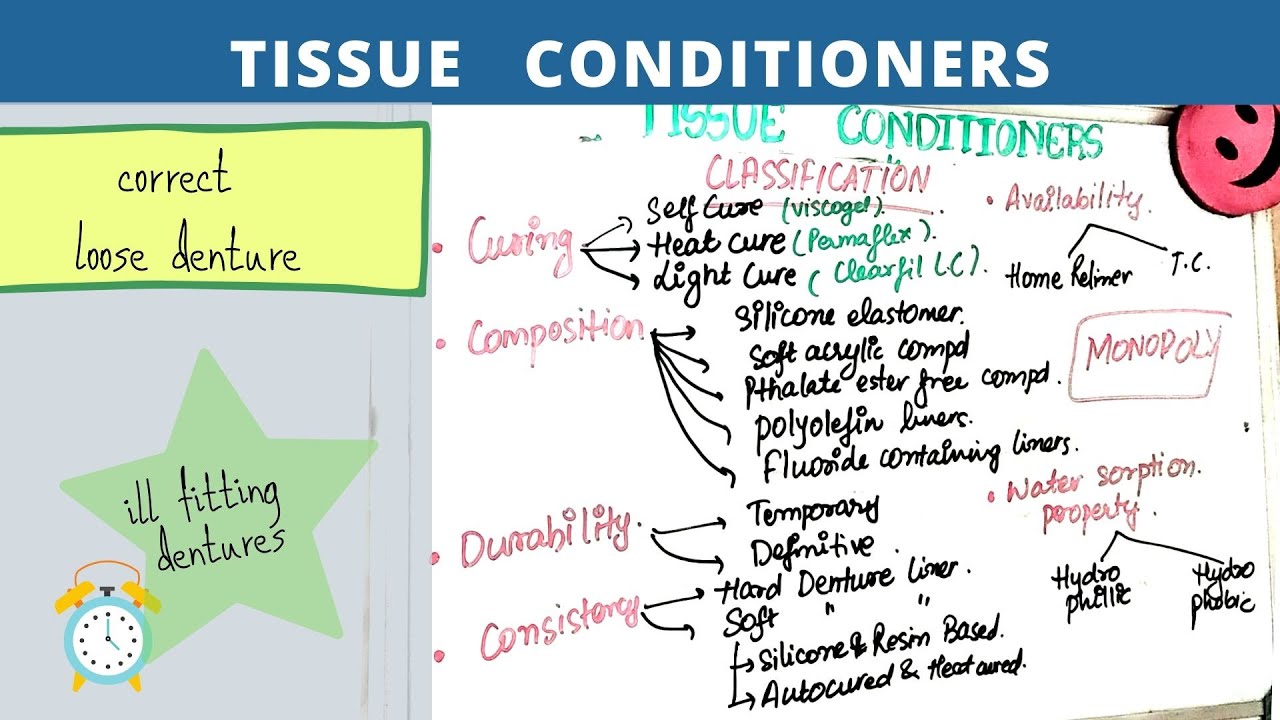 TISSUE CONDITIONERS
correct
loose denture
ill fitting
dentures
TISSUE CONDITIONERS
CLASSIFICATION
• Curing
Self Cure (Viscogel).
Heat cure (Permaflex).
Light Cure (Clearfil L.C).
• Composition
Silicone elastomer.
Soft acrylic compd
Pthalate ester free compd.
Polyolefin liners.
Fluoride containing liners.
• Durability.
Temporary
Definitive.
• Consistency
Hard Denture liner.
Soft " "
Silicone & Resin Based.
Autocured & Heat cured.
• Availability.
Home Reliner
T.C.
MONOPOLY
• Water sorption
property.
Hydro
phillic
Hydro
phobic